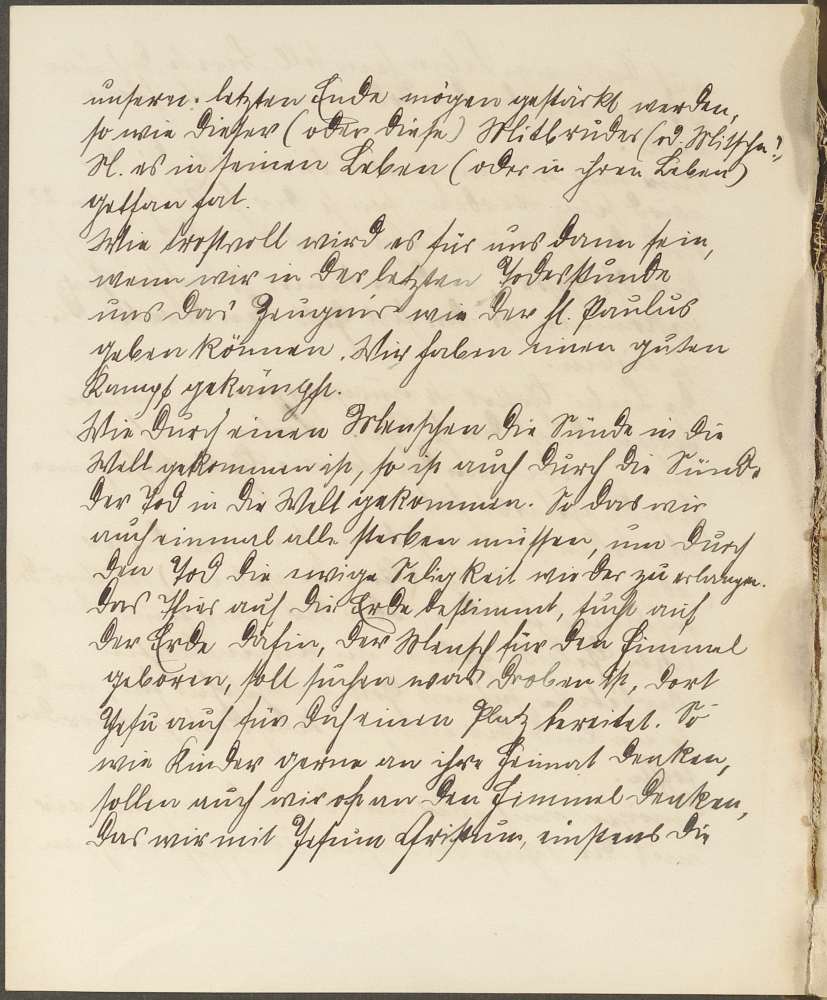 unserm letzten Ende mögen gestärkt werden,
so wie dieser (oder diese) Mitbruder (od. Mitschw.)
N. es in seinen Leben (oder in ihren Leben)
gethan hat.
Wie trostvoll wird es für uns dann sein,
wenn wir in der letzten Todesstunde
uns das Zeugnis wie der hl. Paulus
geben können. Wir haben einen guten
Kampf gekämpft.
Wie durch einen Menschen die Sünde in die
Welt gekommen ist, so ist auch durch die Sünde
der Tod in die Welt gekommen. So das wir
auch einmal alle sterben müssen, um durch
den Tod die ewige Seligkeit wieder zu erlangen.
Das Thier auf die Erde bestimmt, sucht auf
der Erde dahin, der Mensch für den Himmel
geboren, soll suchen was droben ist, dort
Jesu auch für dich einen Platz bereitet. So
wie Kinder gerne an ihre Heimat denken,
sollen auch wir oft an den Himmel denken,
das wir mit Jesum Christum, einstens die